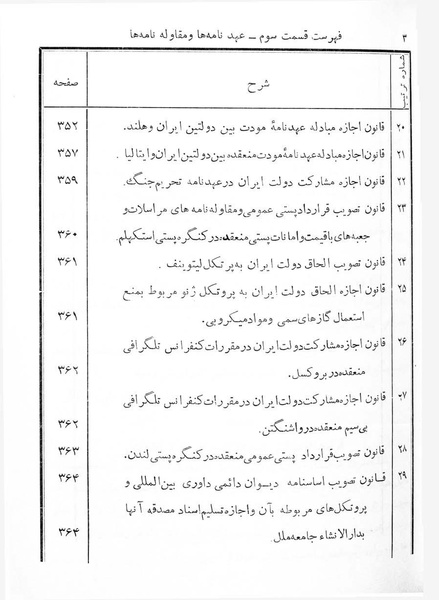 فهرست قسمت سوم ــ عهد نامه‌ها و مقاوله نامه‌ها ۳
شماره ترتیب شرح صفحه
۲۰ قانون اجازه مبادله عهدنامهٔ مودت بین دولتین ایران و هلند. ۳۵۲
۲۱ قانون اجازه مبادله عهدنامهٔ مودت منعقده بین دولتین ایران و ایتالیا . ۳۵۷
۲۲ قانون اجازه مشارکت دولت ایران در عهدنامه تحریم جنگ. ۳۵۹
۲۳ قانون تصویب قرارداد پستی عمومی و مقاوله نامه های مراسلات و
جعبه‌های با قیمت و امانات پستی منعقده در کنگره پستی استکهلم. ۳۶۰
۲۴ قانون تصویب الحاق دولت ایران به پرتکل لیتوینف . ۳۶۱
۲۵ قانون اجازه الحاق دولت ایران به پروتکل ژنو مربوط بمنع
استعمال گازهای سمی و مواد میکروبی. ۳۶۱
۲۶ قانون اجازه مشارکت دولت ایران در مقررات کنفرانس تلگرافی
منعقده در بروکسل. ۳۶۲
۲۷ قانون اجازه مشارکت دولت ایران در مقررات کنفرانس تلگرافی
بی‌سیم منعقده در واشنگتن. ۳۶۲
۲۸ قانون تصویب قرارداد پستی عمومی منعقده در کنگره پستی لندن. ۳۶۳
۲۹ قانون تصویب اساسنامه دیوان دائمی داوری بین‌المللی و ۳۶۴
پروتکل‌های مربوطه بآن و اجازه تسلیم اسناد مصدقه آنها
بدارالانشاء جامعه ملل. ۳۶۴